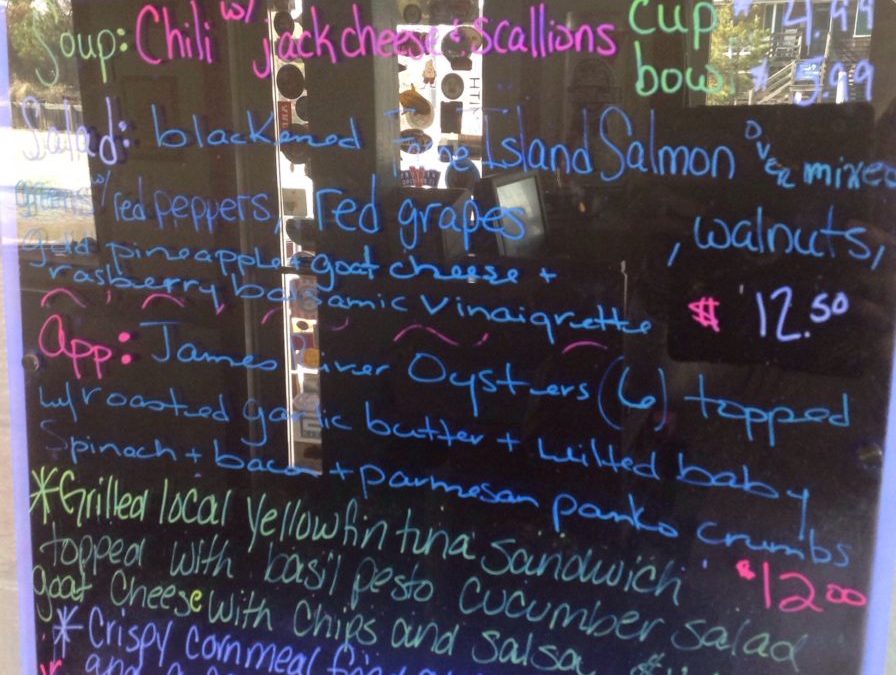 Soup: Chili w/ jack cheese + scallions cup $ 4.99
bowl $ 5.99
Salad: blackened Faroe Island Salmon over mixed
greens w/ red peppers, red grapes, walnuts,
gold pineapple + goat cheese +
rasberry balsamic vinaigrette $ 12.50
App: James River Oysters (6) topped
w/ roasted garlic butter + wilted baby
Spinach + bacon + parmesan panko crumbs
$12.00
*Grilled local yellowfin tuna sandwich
topped with basil pesto cucumber salad
goat cheese with chips and salsa
*Crispy cornmeal fried
and a